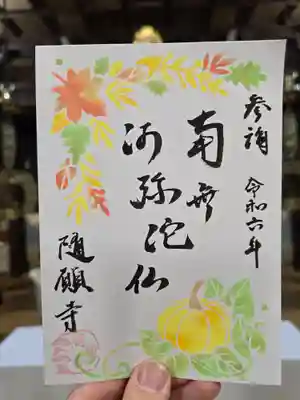 参拝 令和六年
南無
阿弥陀仏
随願寺